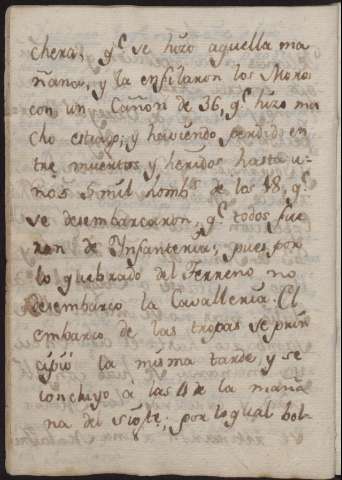 chera, q.e se hizo aquella ma
ñana, y la enfilaron los Moros
con un Cañon de 36, q.e hizo mu
cho estrago, y haviendo perdido en
tre muertos y heridos hasta u-
nos 5 mil homb.s de los 18, q.e
se desembarcaron, q.e todos fue
ron de Ynfanteria, pues por
lo quebrado del Terreno no
desembarco la Cavalleria. El
embarco de las tropas se prin
cipió la misma tarde, y se
concluyo à las 4 de la maña
na del siete, por lo qual bol-